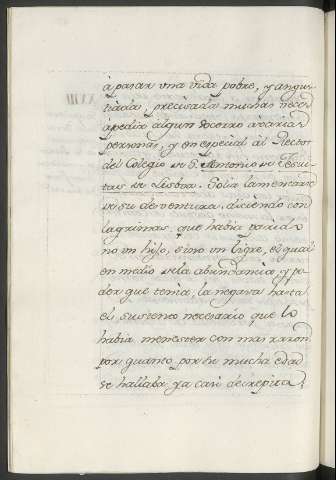 à pasar una vida pobre, y angus-
tiada, precisada muchas veces
à pedir algun socorro a varias
personas, y en especial al Rector
del Colegio de S. Antonio de Jesui-
tas de Lisboa. Solia lamentarse
de su desventura, diciendo con
lagrimas, que habia parido
no un hijo, sino un tigre, el qual
en medio de la abundancia, y po-
der que tenia, la negava hasta
el sustento necesario, que lo
habia menester con mas razon,
por quanto por su mucha edad
se hallaba ya casi decrepita.